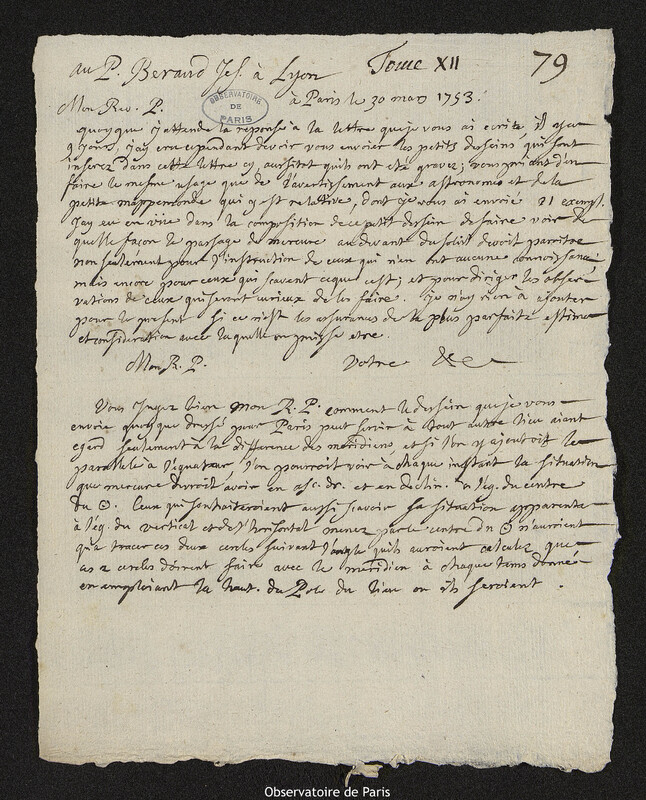 au P. Beraud Jes. à Lyon
Tome XII
79
OBSERVATOIRE DE PARIS
Mon Rev. P.
à Paris le 30 mars 1753.
quoyque j'attende la reponse a la lettre que je vous ai ecrite, il y a
9 jours, j'ay cru cependant devoir vous envoier les petits desseins qui sont
inserez dans cette lettre cy, aussitot quils ont eté gravez; vous priant d'en
faire le mesme usage que de l'avertissement aux astronomes et de la
petite mappemonde qui y est relative, dont je vous ai envoié 21 exempl.
J'ay eu en vue dans la composition de ce petit dessein de faire voir de
quelle façon le passage de mercure au devant du soleil devoit paroitre
non seulement pour l'instruction de ceux qui n'en ont aucune connoissance
mais encore pour ceux qui scavent ce que c'est; et pour diriger les obser-
vations de ceux qui seront curieux de les faire. je n'ay rien à ajouter
pour le present si ce n'est les assurances de la plus parfaite estime
et consideration avec laquelle on puisse etre.
Mon R. P. Votre &c
Vous jugez bien mon R. P. comment le dessein que je vous
envoie quoyque dressé pour Paris peut servir à tout autre lieu aiant
egard seulement à la difference des meridiens et si l'on y ajoutoit le
parallele à l'equateur, l'on pourroit voir à chaque instant la situation
que mercure devroit avoir en asc. dr. et en declin. à l'eg. du centre
du ☉. Ceux qui souhaiteroient aussi scavoir sa situation apparente
à l'eg. du vertical et de l'horisontal menez par le centre du ☉ n'auroient
qu'a tracer ces deux cercles suivant l'angle quils auroient calculez que
ces 2 cercles doivent faire avec le meridien à chaque tems donné
en emploiant la haut. du Pole du lieu ou ils seroient.
Observatoire de Paris